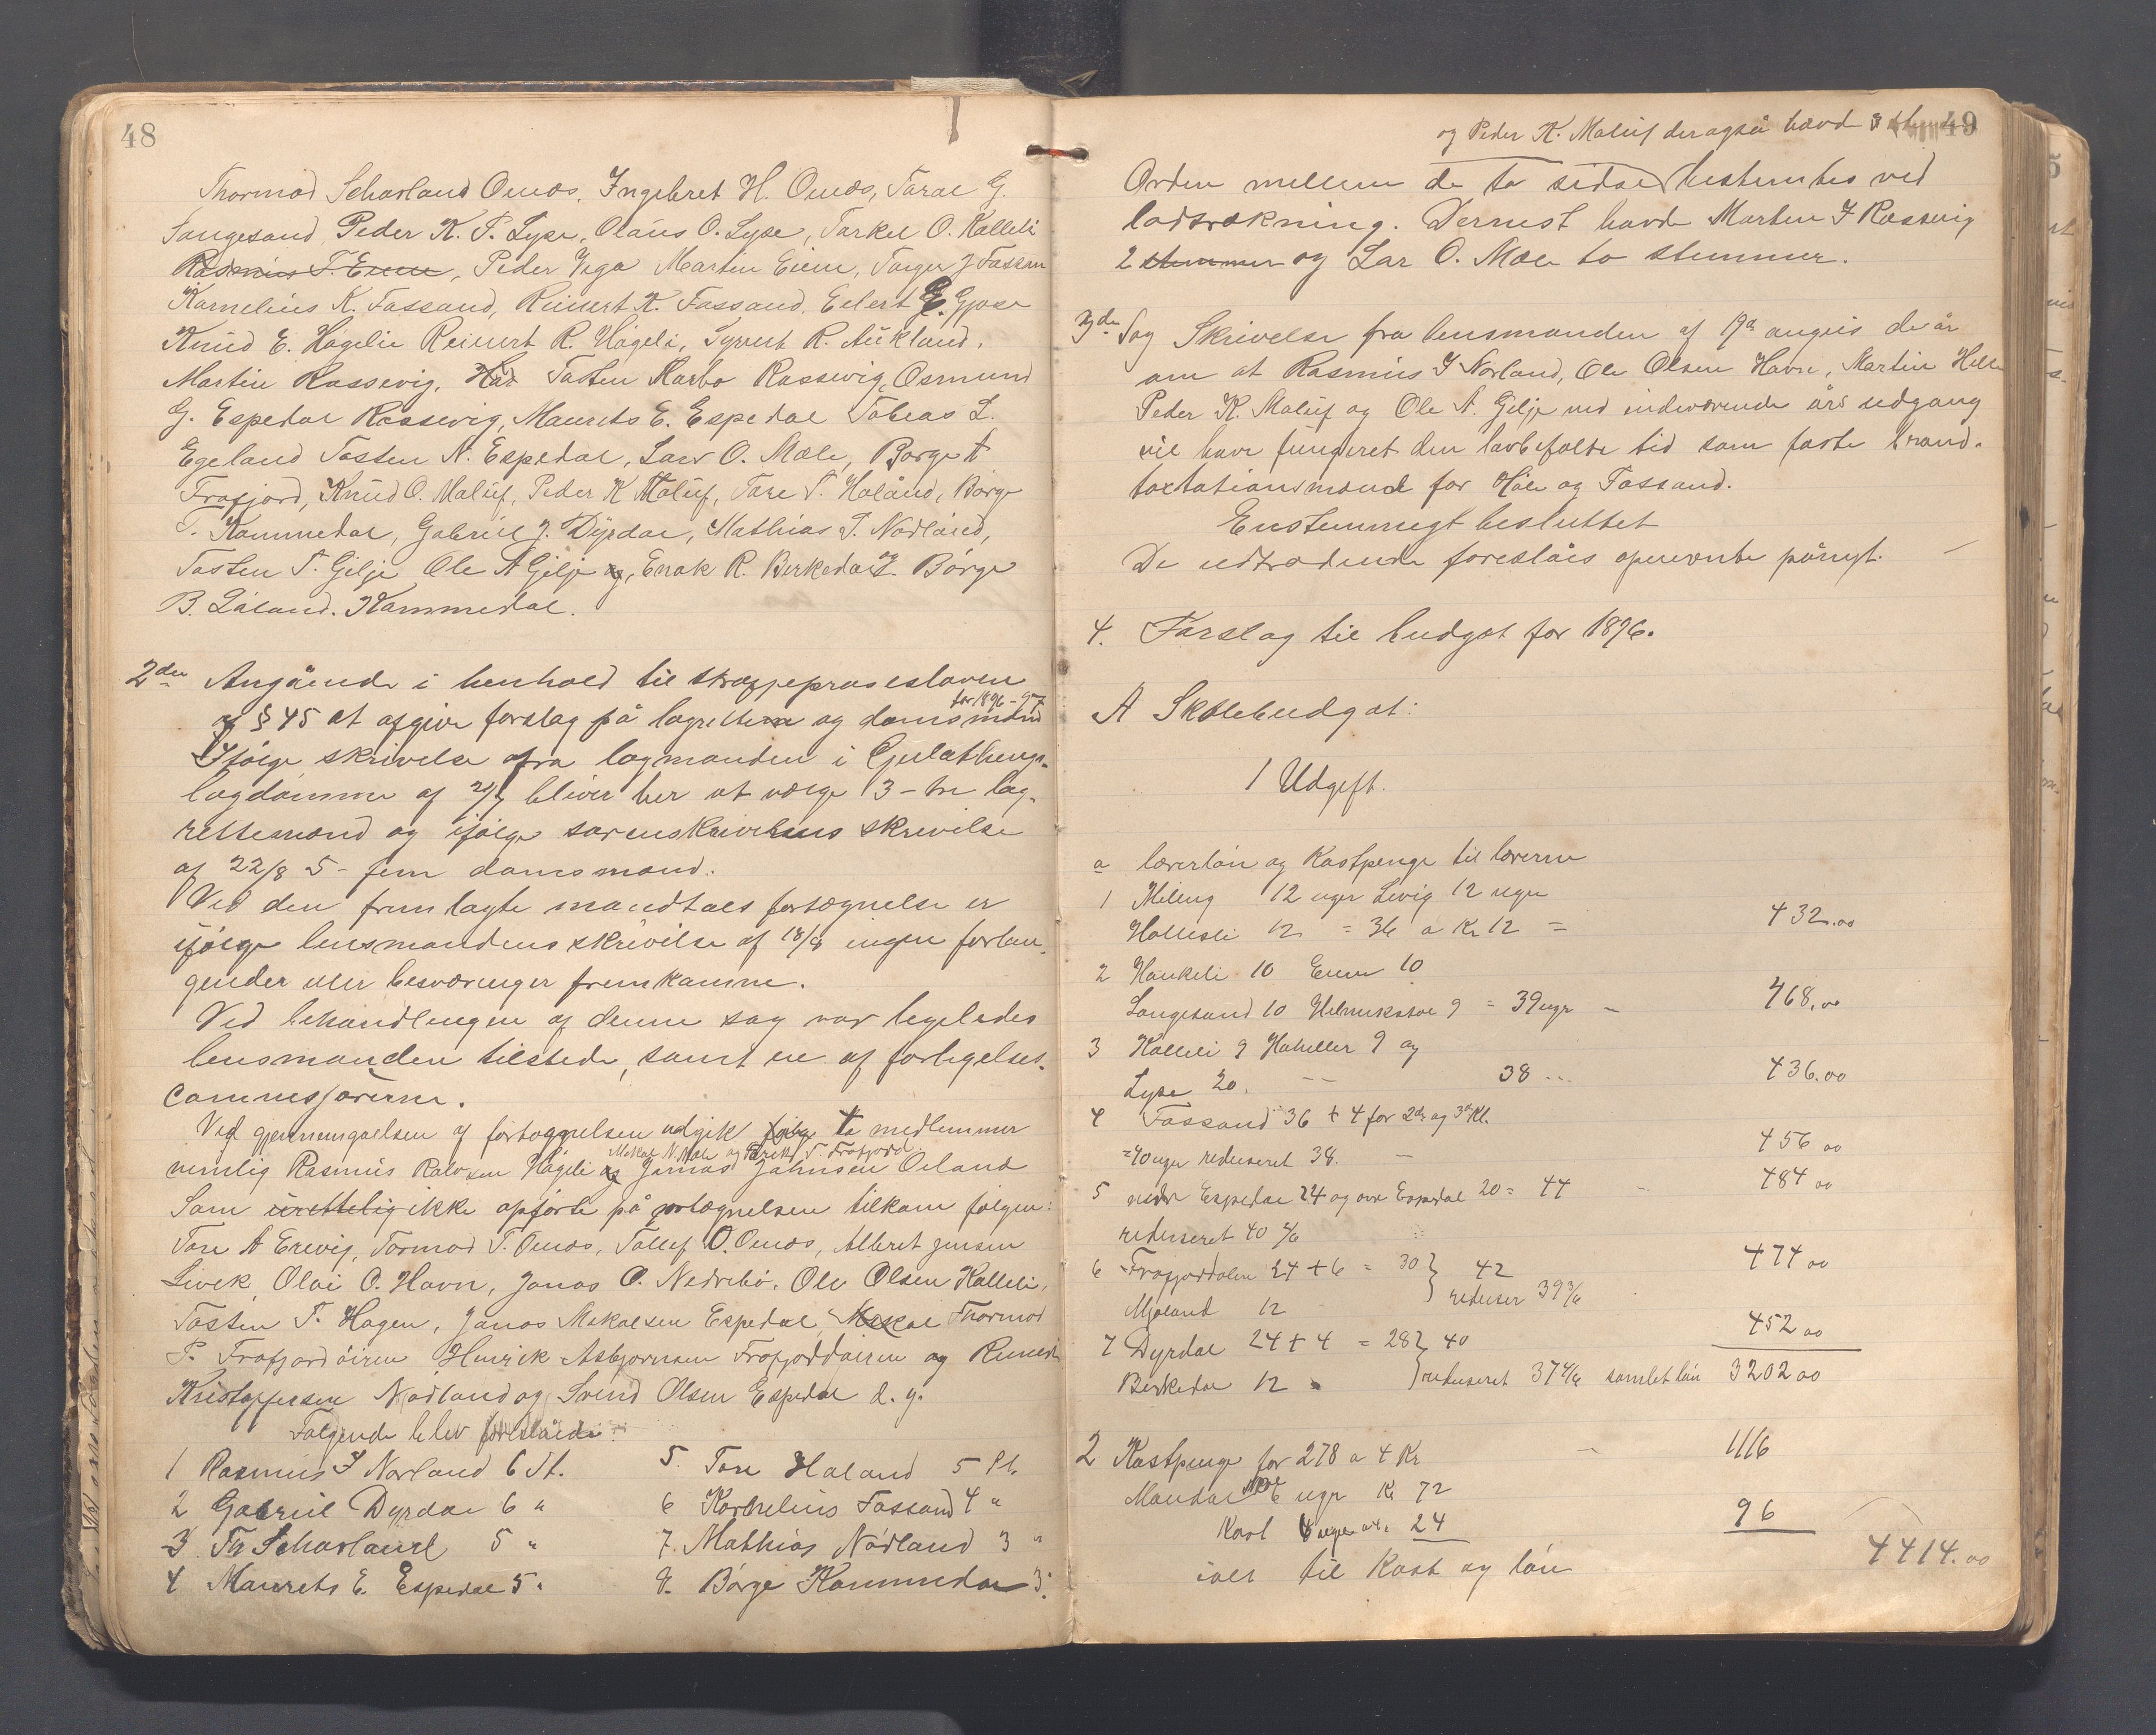 48
Thormod Scharland Onæs, Ingebret H. Onæs, Torae G.
Songesand Peder K. T. Lyse, Olaus O. Lyse, Torkel O. Kalleli
Rasmus T. Eiene, Peder Vega Martin Eiene, Torger J Fossan
Kornelius K. Fossand, Reinert K. Fossand, Eilert E. Gjøse
Knud E. Högelie Reinert R. Högeli, Syvert R. Aukland,
Martin Rossevig, Tosten Karbo Rossevig, Osmund
G. Espedal Rossevig, Maurets E. Espedal Tobias L.
Egeland Tosten N. Espedal, Lars O. Mæle, Børge T
Frafjord, Knud O. Maluf, Peder K Maluf, Tore T. Haland, Børge
T. Kommedal, Gabriel J. Dyrdal, Mathias T. Nødland,
Tosten T. Gilje Ole A Gilje og, Enok R. Berkedal og Børge
B. Øaland. Kommedal.
2den Angående i henhold til straffeproseslovens
for 1896-97
af § 45 at afgive forslag på lagrette og domsmænd
Ifølge skrivelse fra lagmanden i Gulathings
lagdømme af 20/7 bliver her at vælge 3 - tre lag-
rettemænd og ifølge sorenskriverens skrivelse
af 22/8 5 - fem domsmænd.
Ved den fremlagte mandtals fortegnelse er
ifølge lensmandens skrivelse af 18/8 ingen forlan-
gender eller besværinger fremkomne.
Ved behandlingen af denne sag var ligeledes
lensmanden tilstede, samt en af forligelses-
commesjærerne.
Ved gjennemgaelsen af fortegnelsen udgik to medlemmer
Mekal N. Mæle og Tørick T. Frafjord
nemlig Rasmus Ralvsen Högeli og Jonas Johnsen Øeland
Som urettelig ikke opførte på fortegnelsen tilkom følgen:
Tore A Erevig, Tormod T. Onæs, Tollef O. Onæs, Albret Jensen
Levek, Olai O. Havn, Jonas O. Nedrebø, Ole Olsen Kalleli,
Tosten T. Hagen, Jonas Mekalsen Espedal, Mekal Thormod
P. Frafjord öiren Henrik Asbjørnsen Frafjordöiren og Reinert
Kristoffersen Nødland og Svend Olsen Espedal d. y.
Følgende blev foreslåede:
1 Rasmus I Norland 6 st.
2 Gabriel Dyrdal 6 "
3 Th Scharland 5 "
4 Maurets E. Espedal 5 "
5. Tore Haland 5 st.
6 Kornelius Fossand 4 "
7. Mathias Nödland 3 "
8. Børge Kommedal 3 "
49
og Peder K. Maluf der også havde 3
Orden mellem de to sidste bestemtes ved
lodtrækning. Dernest havde Morten I Rossevig
2 stemmer og Lar O. Mæle to stemmer.
3die Sag Skrivelse fra lensmanden af 19de augus de år
om at Rasmus I Norland, Ole Olsen Havn, Martin Helle
Peder K. Maluf og Ole A. Gilje med indeværende års udgang
vil have fungeret den lovbefalte tid som faste brand-
taxtationsmænd for Höle og Fossand.
Enstemmigt besluttet
De udtrædende foreslåes opnævnte pånyt.
4. Forslag til budget for 1896.
A Skolebudget:
1 Udgift.
a lærerløn og Kostpenge til lærerne
1 Meling 12 uger Levig 12 uger
Hollesli 12 = 36 a Kr 12 = 432.00
2 Haukeli 10 Eiene 10
Songesand 10 Helmikstøl 9 = 39 uger - 468.00
3 Kalleli 9 Hatveller 9 og
Lyse 20. -- 38 ... 436.00
4 Fossand 36 + 4 for 2de og 3de Kl.
= 40 uger reduseret 38. - 456 00
5 nedre Espedal 24 og øvre Espedal 20 = 44 484 00
reduseret 40 2/6
6 Frafjorddalen 24 + 6 = 30 } 42 474 00
Mjøland 12 } reduser 39 3/6
7 Dyrdal 24 + 4 = 28 } 40 452 00
Berkedal 12 } reduseret 37 4/6 samlet løn 3202 00
2 Kostpenge for 278 a 4 Kr - 1116
Maudal 6 uger Kr 72
Kost 6 uger a 4. 24 96
ialt til Kost og løn 4414.00